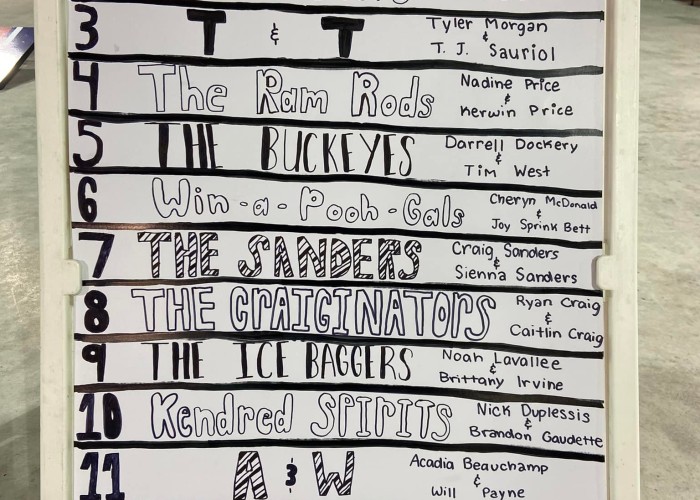 3 T & T Tyler Morgan
&
T. J. Sauriol
4 The Ram Rods Nadine Price
&
Kerwin Price
5 THE BUCKEYES Darrell Dockery
&
Tim West
6 Win-a-Pooh-Gals Cheryn McDonald
&
Joy Sprink Bett
7 THE SANDERS Craig Sanders
&
Sienna Sanders
8 THE CRAIGINATORS Ryan Craig
&
Caitlin Craig
9 THE ICE BAGGERS Noah Lavallee
&
Brittany Irvine
10 Kendred SPIRITS Nick Duplessis
&
Brandon Gaudette
11 A & W Acadia Beauchamp
&
Will Payne